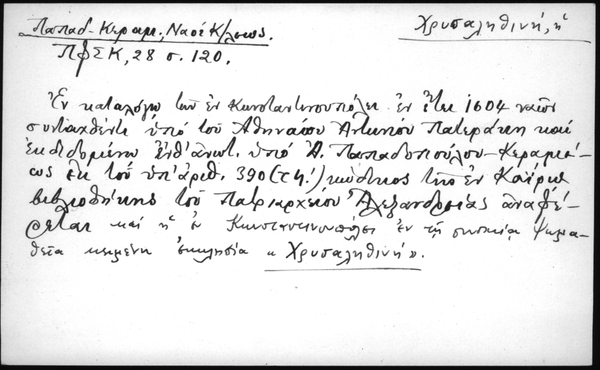 Παπαδ.-Κεραμ., Ναοί Κ/λεως.
Χρυσαληθινή, ἡ
ΠΦΣΚ, 28 σ. 120.
Ἐν καταλόγῳ τῶν ἐν Κωνσταντινουπόλει ἐν ἔτει 1604 ναῶν
συνταχθέντι ὑπό τοῦ Ἀθηναίου Ἀντωνίου Πατεράκη καί
ἐκδεδομένῳ ὑπό Ἀ. Παπαδοπούλου-Κεραμέ-
ως ἐκ τοῦ ὑπ' ἀριθ. 390 κώδικος τῆς ἐν Καΐρῳ
βιβλιοθήκης τοῦ Πατριαρχείου Ἀλεξανδρείας ἀναφέ-
ρεται καί ἡ ἐν Κωνσταντινουπόλει ἐν τῇ συνοικίᾳ Ψωμα-
θεῖα κειμένη ἐκκλησία « Χρυσαληθινή ».